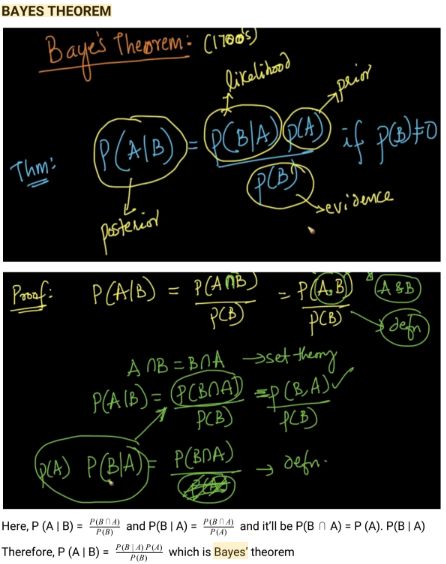 BAYES THEOREM
Baye's Theorem: (1700's)
likelihood
prior
Thm: P(A|B) = P(B|A) P(A) / P(B) if P(B)≠0
posterior
evidence
Proof: P(A|B) = P(A∩B) / P(B) = P(A,B) / P(B) A & B
defn
A∩B = B∩A → set theory
P(A|B) = P(B∩A) / P(B) = P(B,A) / P(B) ✓
P(A) P(B|A) = P(B∩A) → defn.
Here, P (A | B) = P(B∩A) / P(B) and P(B | A) = P(B∩A) / P(A) and it'll be P(B ∩ A) = P (A). P(B | A)
Therefore, P (A | B) = P(B | A) P(A) / P(B) which is Bayes' theorem